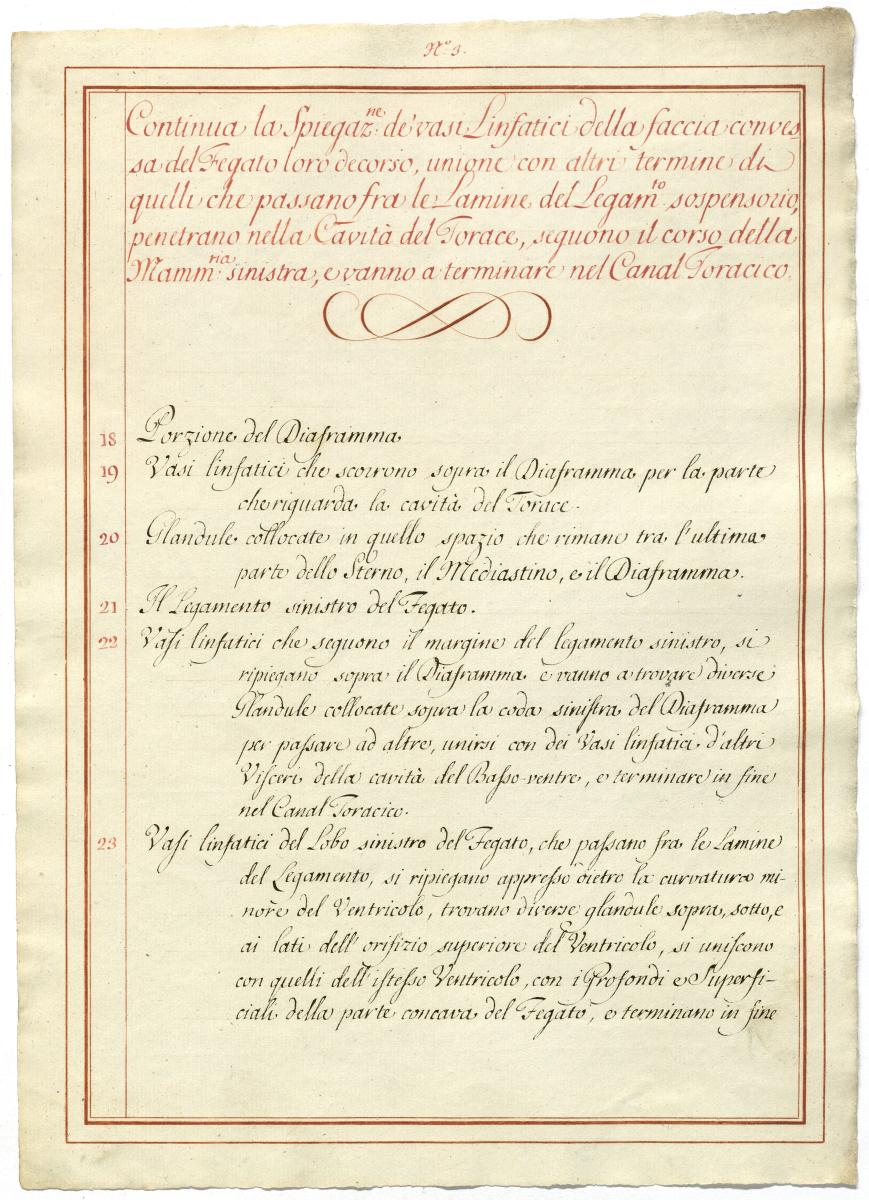 N.º 3.
Continua la Spiegaz.ne de' vasi Linfatici della faccia conves,
sa del Fegato loro decorso, unione con altri termine di
quelli che passano fra le Lamine del Legam.to sospensorio,
penetrano nella Cavità del Torace, seguono il corso della
Mamm.ria sinistra, e vanno a terminare nel Canal Toracico.
18 Porzione del Diaframma
19 Vasi linfatici che scorrono sopra il Diaframma per la parte
che riguarda la cavità del Torace.
20 Glandule collocate in quello spazio che rimane tra l'ultima
parte dello Sterno, il Mediastino, e il Diaframma.
21 Il Legamento sinistro del Fegato.
22 Vasi linfatici che seguono il margine del legamento sinistro, si
ripiegano sopra il Diaframma e vanno a trovare diverse
Glandule collocate sopra la coda sinistra del Diaframma
per passare ad altre, unirsi con dei Vasi linfatici d'altri
Visceri della cavità del Basso-ventre, e terminare in fine
nel Canal Toracico.
23 Vasi linfatici del Lobo sinistro del Fegato, che passano fra le Lamine
del Legamento, si ripiegano appresso dietro la curvatura mi-
nore del Ventricolo, trovano diverse glandule sopra, sotto, e
ai lati dell'orifizio superiore del Ventricolo, si uniscono
con quelli dell'istesso Ventricolo, con i Profondi e Superfi-
ciali della parte concava del Fegato, e terminano in fine